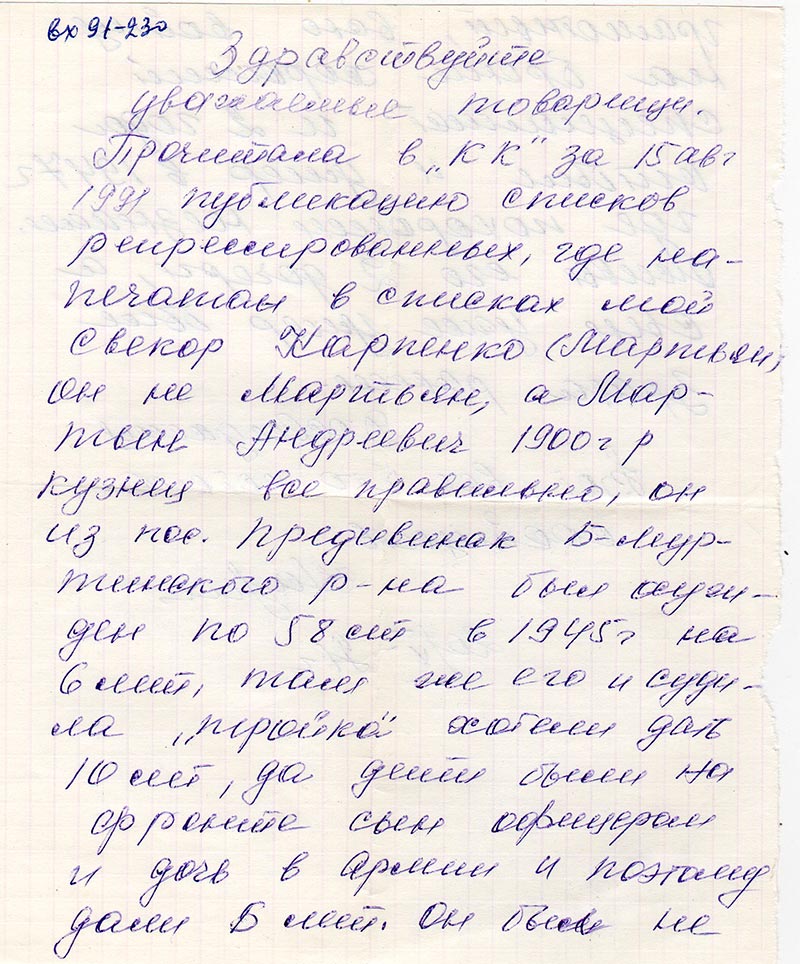 вх 91-230
Здравствуйте
уважаемые товарищи.
Прочитала в „КК“ за 15 авг
1991 публикацию списков
репрессированных, где на-
печатан в списках мой
свекор Карпенко (Мартьян,
он не Мартьян, а Мар-
тын Андреевич 1900 г р
кузнец все правильно, он
из пос. Предивинск Б-Мур-
тинского р-на был осуж-
ден по 58 ст в 1945 г на
6 лет, там же его и суди-
ла „тройка“ хотели дать
10 лет, да дети были на
фронте сын офицером
и дочь в армии и поэтому
дали 6 лет. Он был не